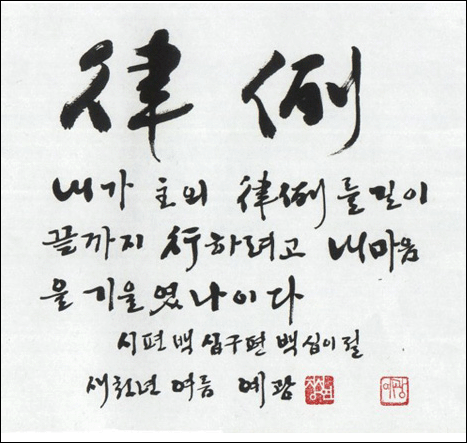 律例
내가 主의 律例를 길이
끝까지 行하려고 내마음
을 기울였나이다
시편 백십구편 백십이절
새천년 여름 예광
예광